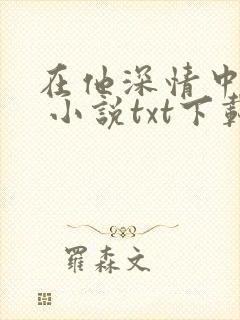 在他深情中
小說txt下載
羅森文